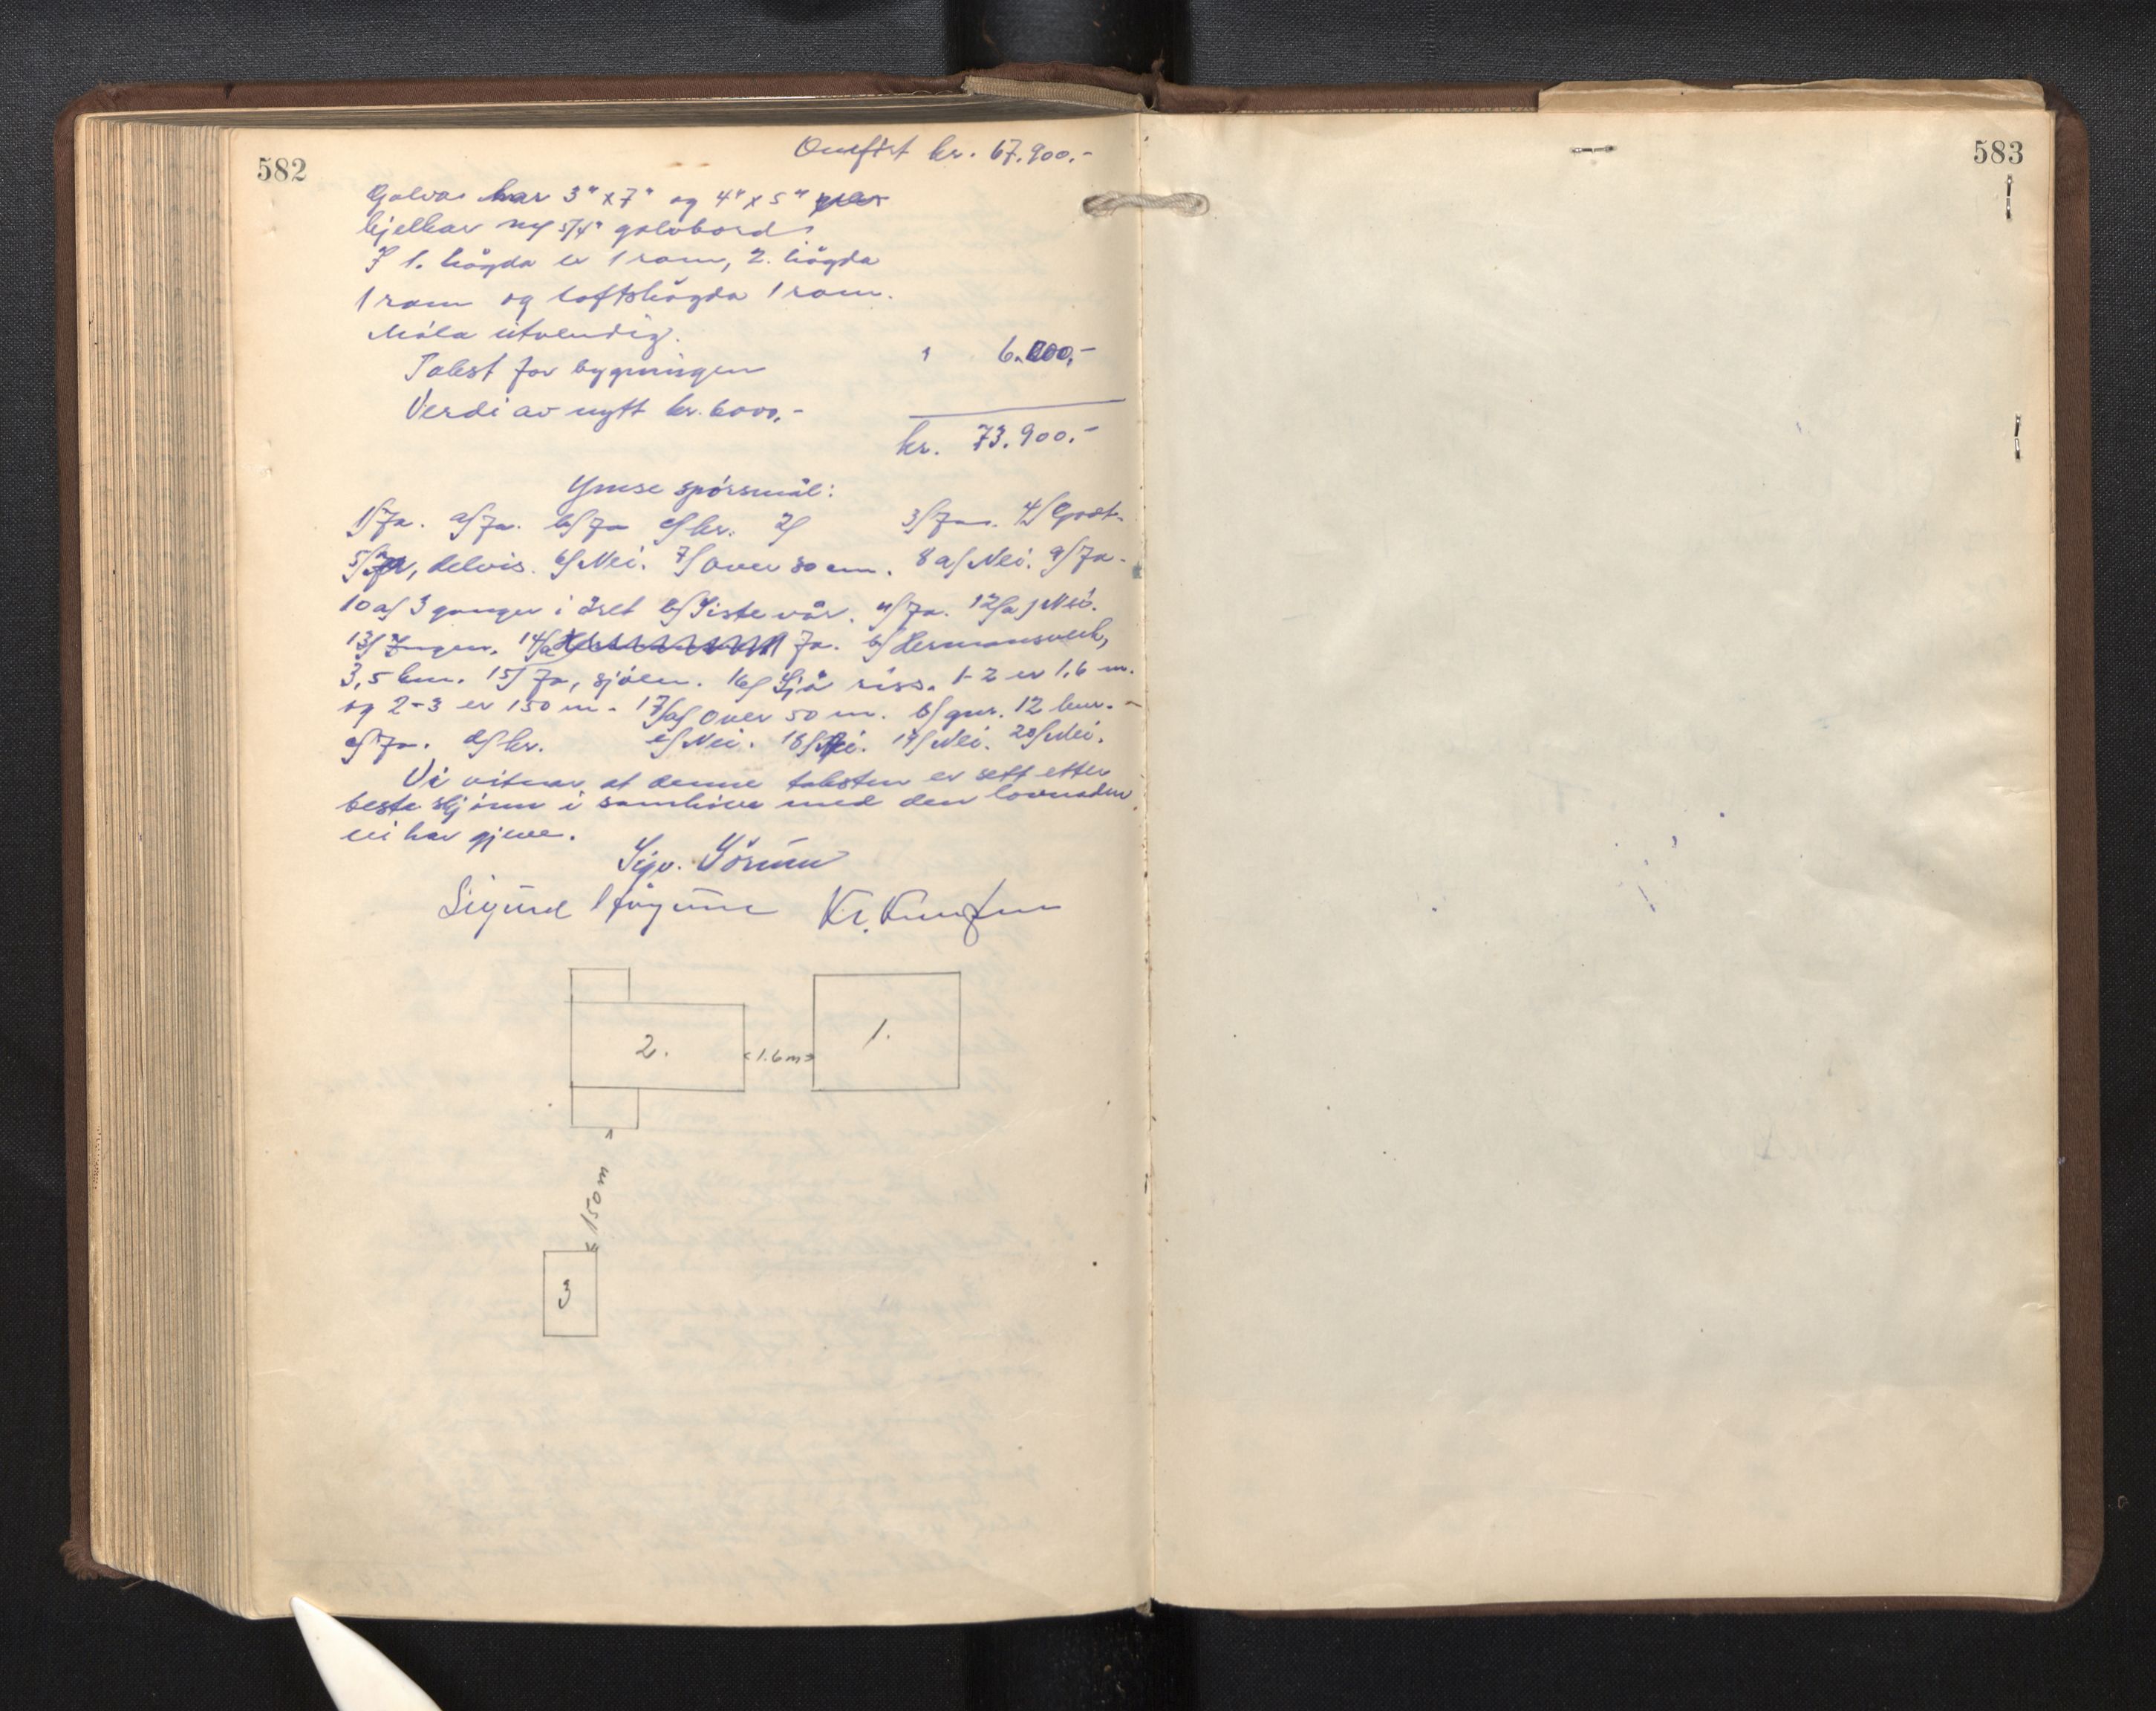 582
Omført kr. 67.900.-
Golva har 3" x 7" og 4" x 5"
bjelkar m/ 5/4" golvbord
I 1. högda er 1 rom, 2. högda
1 rom og loftshögda 1 rom.
Måla utvendig.
Takst for bygningen " 6.000,-
Verdi av nytt kr. 6000,-
kr. 73.900.-
Ymse spörsmål:
1/ Ja. a/ Ja. b/ Ja c/ kr. 2/ 3/ Jau. 4/ Godt.
5/ Ja, delvis. 6/ Nei. 7/ Over 80 cm. 8 a/ Nei. 9/ Ja.
10 a/ 3 gonger i året b/ Siste vår. 11/ Ja. 12/a Nei.
13/ Ingen. 14/a Ja. b/ Hermansverk,
3,5 km. 15/ Ja, sjöen. 16/ Sjå riss. 1-2 er 1,6 m.
og 2-3 er 150 m. 17/a/ Over 50 m. b/ 12 km.
c/ Ja. d/ kr. e/ Nei. 18/ Nei. 19/ Nei. 20/ Nei.
Vi vitnar at denne taksten er sett etter
beste skjönn i samhöve med den lovnaden
vi har gjeve.
Sigurd Kr.
2. <1.6m> 1.
150 m
3
583